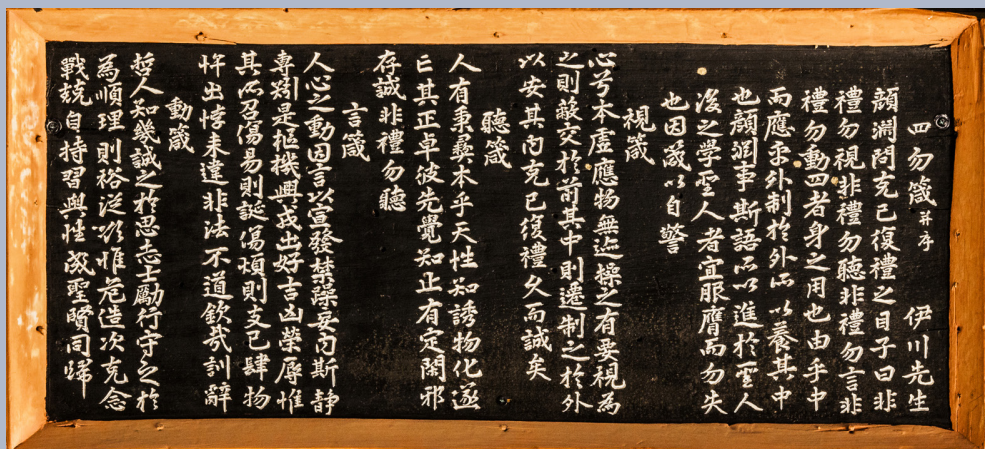 四勿箴 并序 伊川先生
顔淵問克己復禮之目子曰非
禮勿視非禮勿聽非禮勿言非
禮勿動四者身之用也由乎中
而應乎外制於外所以養其中
也顔淵事斯語所以進於聖人
後之学聖人者宜服膺而勿失
也因箴以自警
視箴
心兮本虛應物無迹操之有要視為
之則蔽交於前其中則遷制之於外
以安其內克己復禮久而誠矣
聽箴
人有秉彝本乎天性知誘物化遂
亡其正卓彼先覺知止有定閑邪
存誠非禮勿聽
言箴
人心之動因言以宣發禁躁妄內斯靜
專矧是樞機興戎出好吉凶榮辱惟
其所召傷易則誕傷煩則支己肆物
忤出悖来違非法不道欽哉訓辭
動箴
哲人知幾誠之於思志士勵行守之於
為順理則裕從欲惟危造次克念
戰兢自持習與性成聖賢同歸